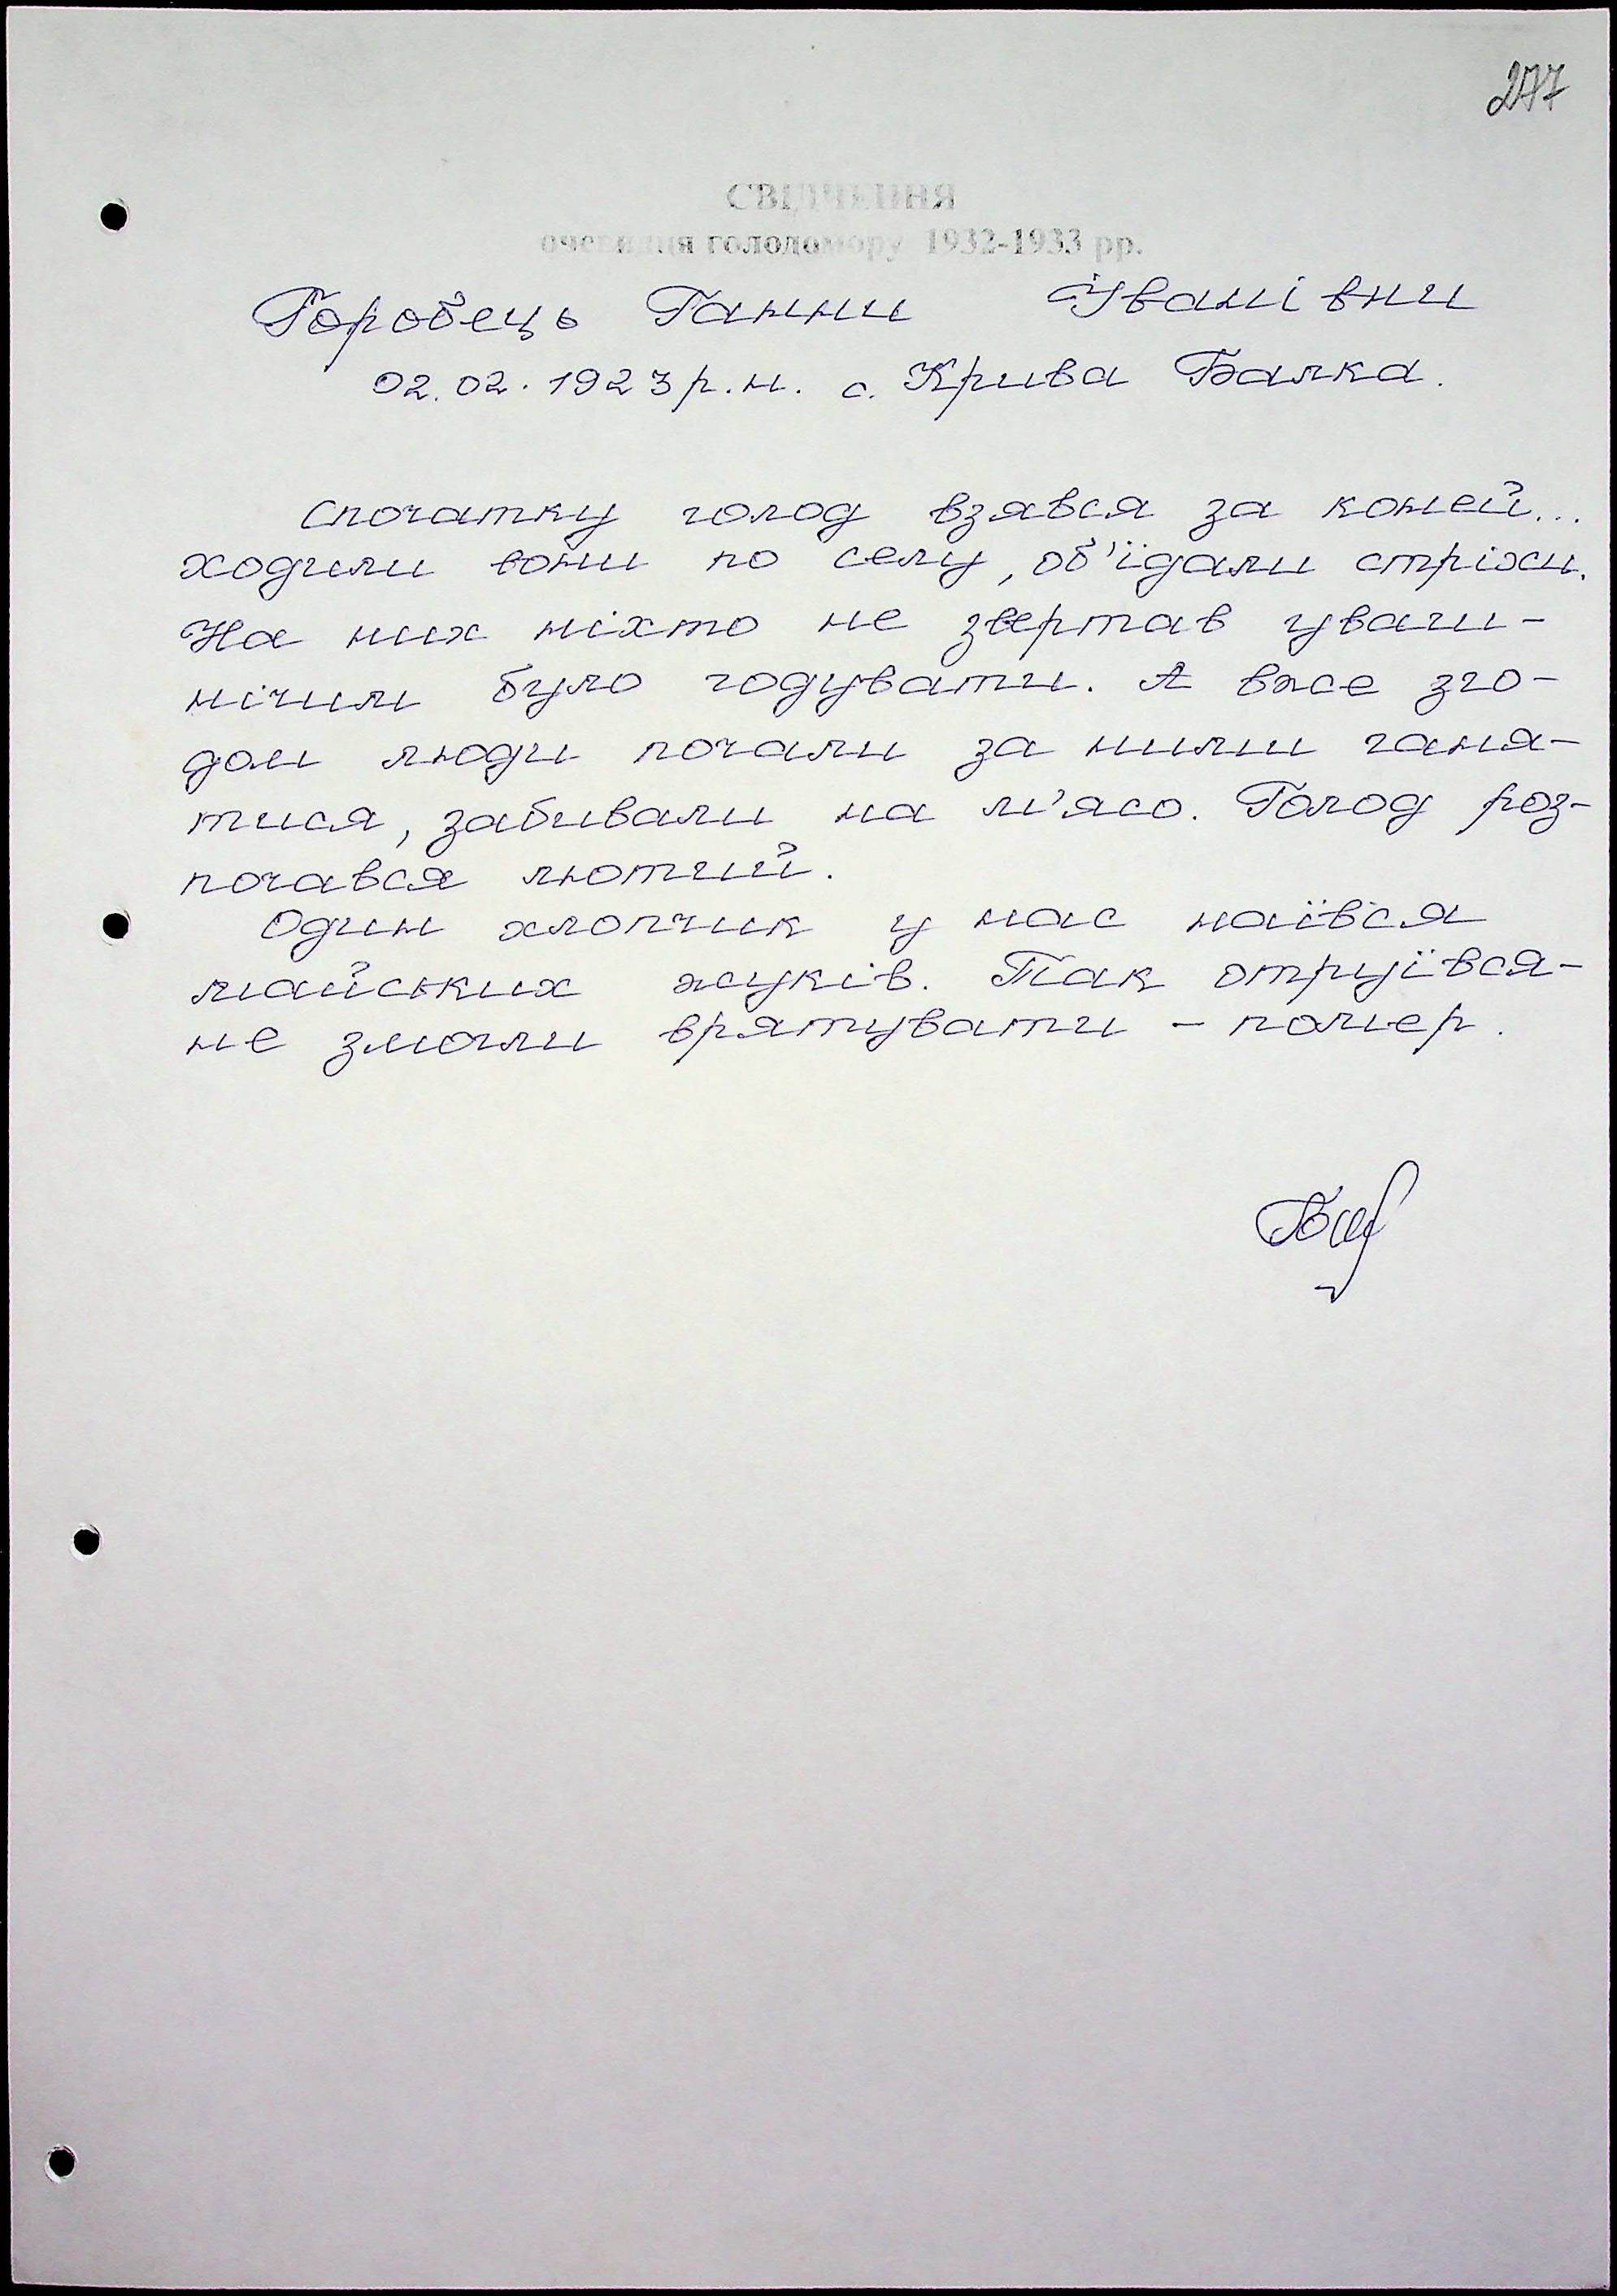 277
СВІДЧЕННЯ
очевидця голодомору 1932-1933 рр.
Горобець Ганни Іванівни
02.02.1923 р.н. с. Крива Балка.
Спочатку голод взявся за коней...
ходили вони по селу, об'їдали стріхи.
На них ніхто не звертав уваги -
нічим було годувати. А вже зго-
дом люди почали за ними ганя-
тися, забивали на м'ясо. Голод роз-
почався лютий.
Один хлопчик у нас наївся
майських жуків. Так отруївся -
не змогли врятувати - помер.